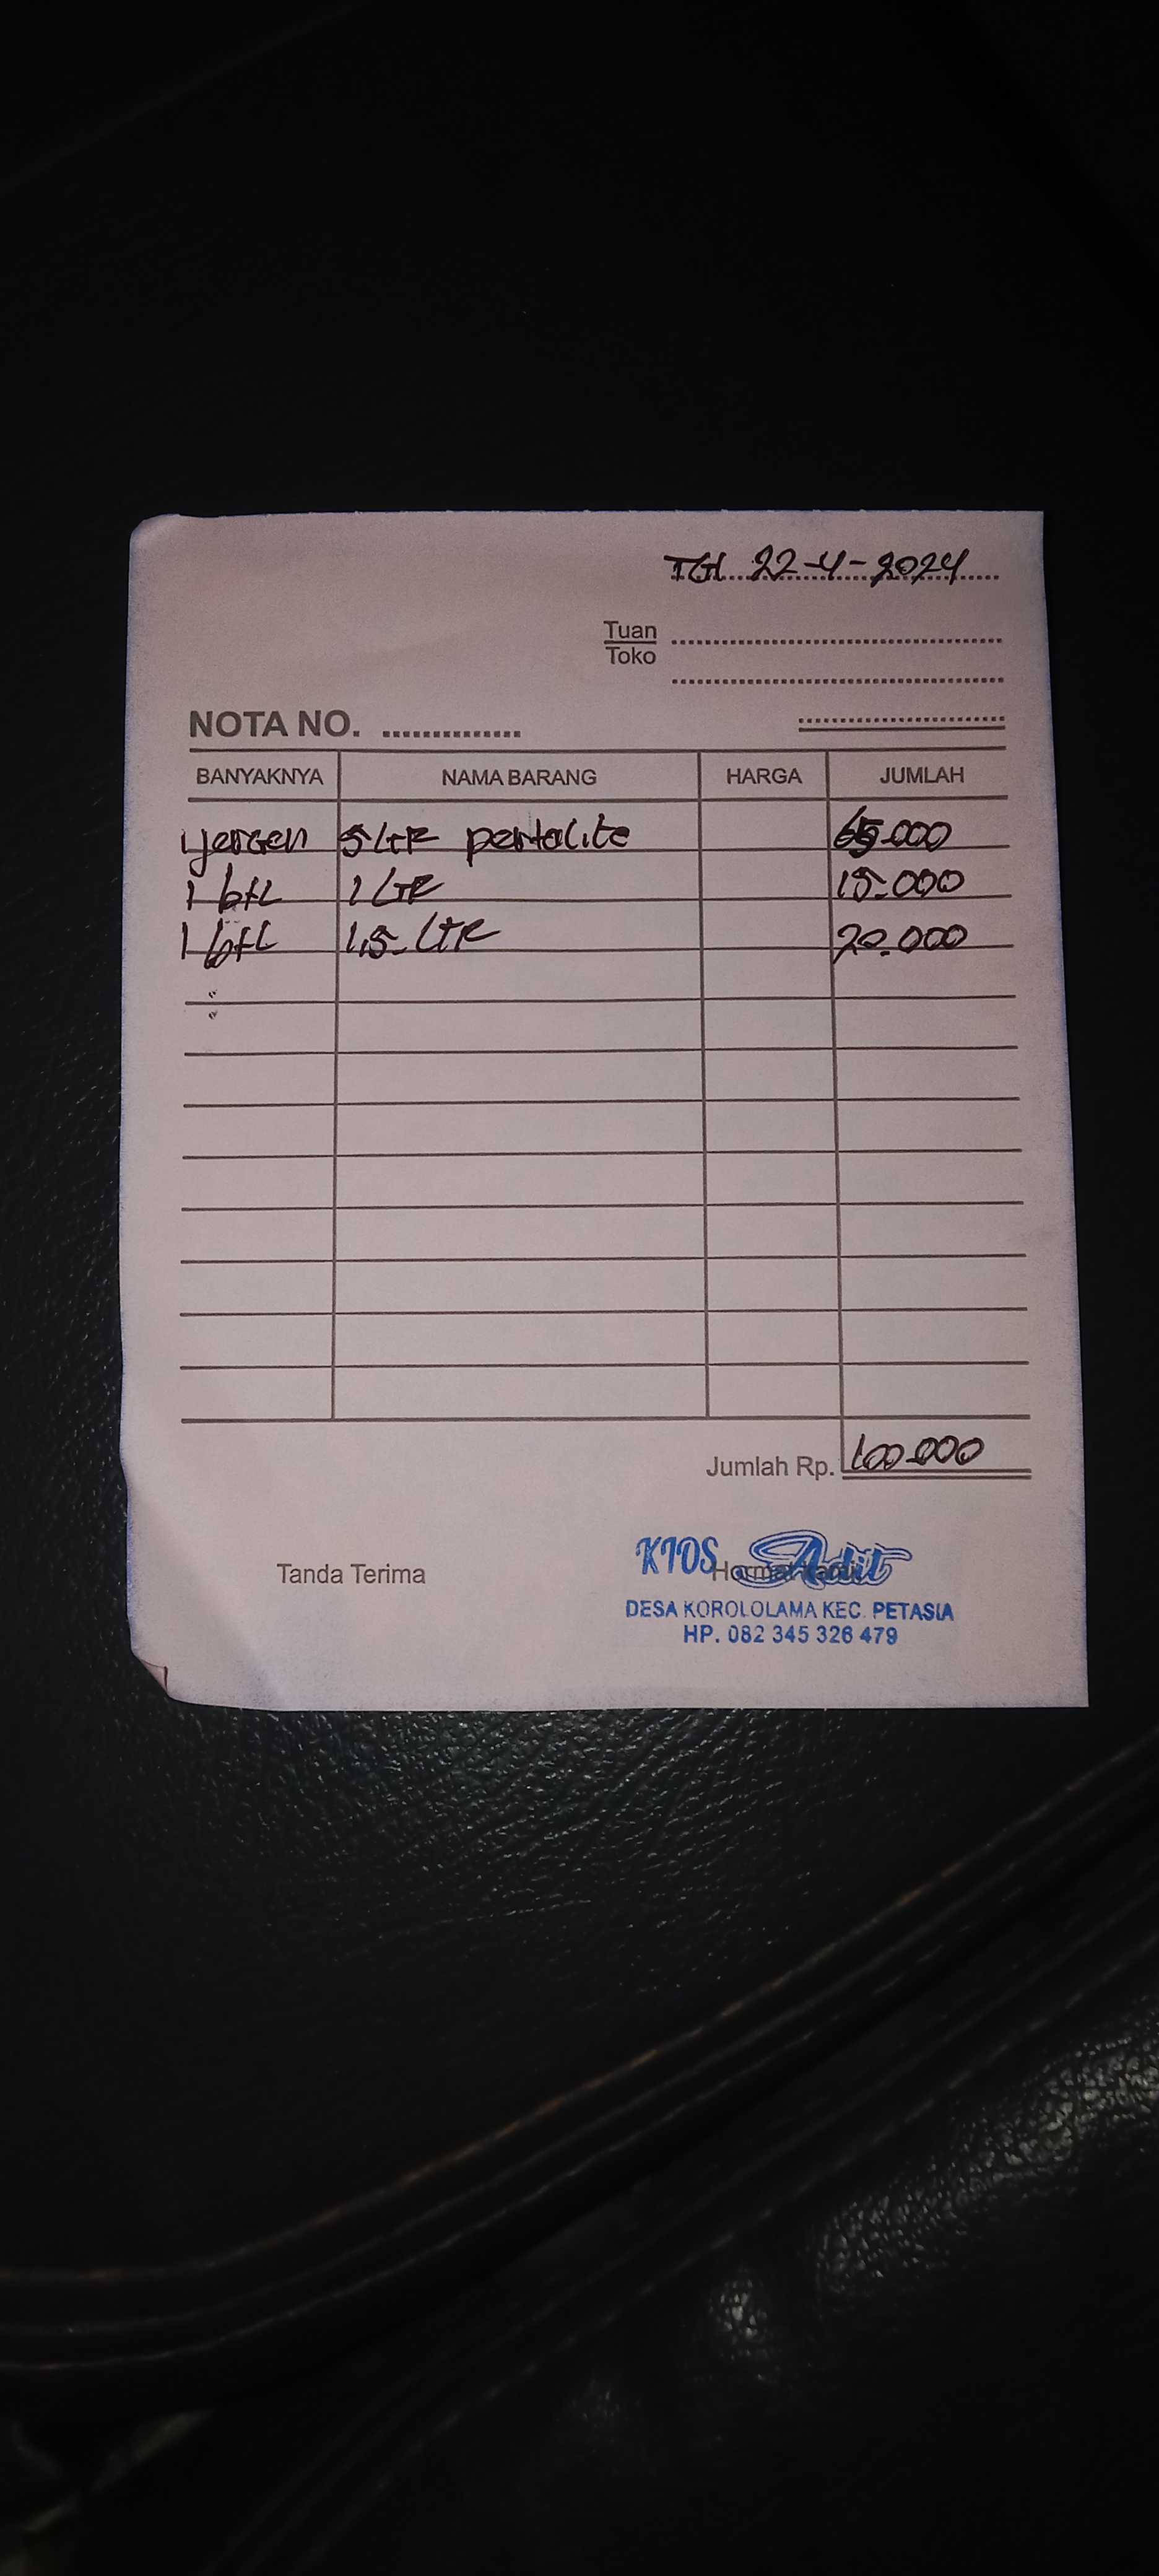 TGL 22-4-2024
Tuan
Toko
NOTA NO.
BANYAKNYA NAMA BARANG HARGA JUMLAH
1 jergen 5 LTR pertalite 65.000
1 btl 1 LTR 15.000
1 btl 1,5 LTR 20.000
Jumlah Rp. 100.000
Tanda Terima Hormat
KIOS Adit
DESA KOROLOLAMA KEC. PETASIA
HP. 082 345 326 479